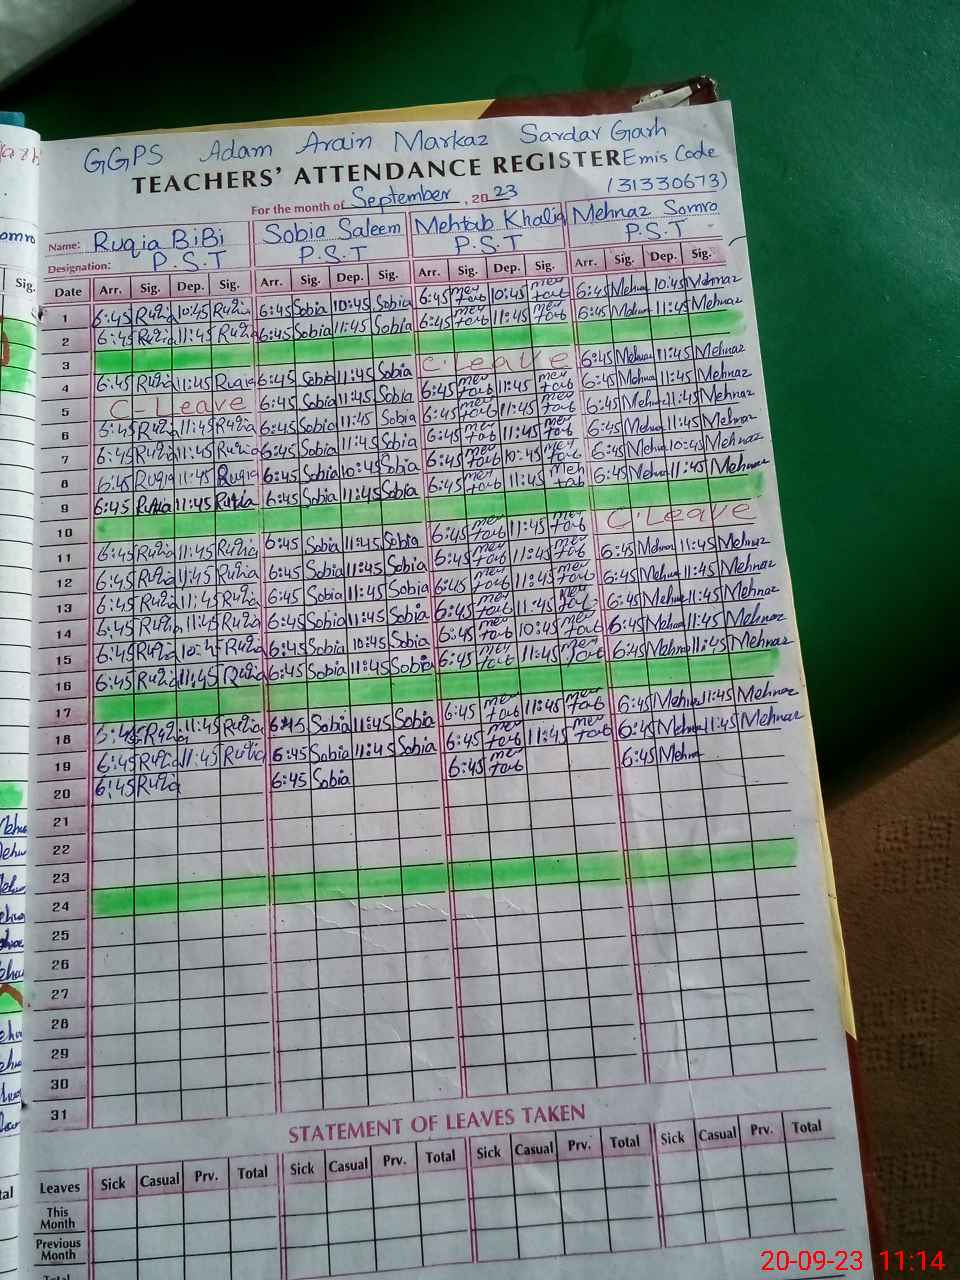 GGPS Adam Arain Markaz Sardar Garh
TEACHERS' ATTENDANCE REGISTER Emis Code
For the month of September, 2023 (31330673)
Name: Ruqia BiBi Sobia Saleem Mehtab Khaliq Mehnaz Somro
Designation: P.S.T P.S.T P.S.T P.S.T
Date Arr. Sig. Dep. Sig. Arr. Sig. Dep. Sig. Arr. Sig. Dep. Sig. Arr. Sig. Dep. Sig.
1 6:45 Ruqia 10:45 Ruqia 6:45 Sobia 10:45 Sobia 6:45 Mehtab 10:45 Mehtab 6:45 Mehnaz 10:45 Mehnaz
2 6:45 Ruqia 11:45 Ruqia 6:45 Sobia 11:45 Sobia 6:45 Mehtab 11:45 Mehtab 6:45 Mehnaz 11:45 Mehnaz
3
4 6:45 Ruqia 11:45 Ruqia 6:45 Sobia 11:45 Sobia C.Leave 6:45 Mehnaz 11:45 Mehnaz
5 C-Leave 6:45 Sobia 11:45 Sobia 6:45 Mehtab 11:45 Mehtab 6:45 Mehnaz 11:45 Mehnaz
6 6:45 Ruqia 11:45 Ruqia 6:45 Sobia 11:45 Sobia 6:45 Mehtab 11:45 Mehtab 6:45 Mehnaz 11:45 Mehnaz
7 6:45 Ruqia 11:45 Ruqia 6:45 Sobia 11:45 Sobia 6:45 Mehtab 11:45 Mehtab 6:45 Mehnaz 11:45 Mehnaz
8 6:45 Ruqia 11:45 Ruqia 6:45 Sobia 10:45 Sobia 6:45 Mehtab 10:45 Mehtab 6:45 Mehnaz 10:45 Mehnaz
9 6:45 Ruqia 11:45 Ruqia 6:45 Sobia 11:45 Sobia 6:45 Mehtab 11:45 Mehtab 6:45 Mehnaz 11:45 Mehnaz
10
11 6:45 Ruqia 11:45 Ruqia 6:45 Sobia 11:45 Sobia 6:45 Mehtab 11:45 Mehtab C.Leave
12 6:45 Ruqia 11:45 Ruqia 6:45 Sobia 11:45 Sobia 6:45 Mehtab 11:45 Mehtab 6:45 Mehnaz 11:45 Mehnaz
13 6:45 Ruqia 11:45 Ruqia 6:45 Sobia 11:45 Sobia 6:45 Mehtab 11:45 Mehtab 6:45 Mehnaz 11:45 Mehnaz
14 6:45 Ruqia 11:45 Ruqia 6:45 Sobia 11:45 Sobia 6:45 Mehtab 11:45 Mehtab 6:45 Mehnaz 11:45 Mehnaz
15 6:45 Ruqia 10:45 Ruqia 6:45 Sobia 10:45 Sobia 6:45 Mehtab 10:45 Mehtab 6:45 Mehnaz 11:45 Mehnaz
16 6:45 Ruqia 11:45 Ruqia 6:45 Sobia 11:45 Sobia 6:45 Mehtab 11:45 Mehtab 6:45 Mehnaz 11:45 Mehnaz
17
18 6:45 Ruqia 11:45 Ruqia 6:45 Sobia 11:45 Sobia 6:45 Mehtab 11:45 Mehtab 6:45 Mehnaz 11:45 Mehnaz
19 6:45 Ruqia 11:45 Ruqia 6:45 Sobia 11:45 Sobia 6:45 Mehtab 11:45 Mehtab 6:45 Mehnaz 11:45 Mehnaz
20 6:45 Ruqia 6:45 Sobia 6:45 Mehtab 6:45 Mehnaz
21
22
23
24
25
26
27
28
29
30
31
STATEMENT OF LEAVES TAKEN
Leaves Sick Casual Prv. Total Sick Casual Prv. Total Sick Casual Prv. Total Sick Casual Prv. Total
This Month
Previous Month
Total
20-09-23 11:14